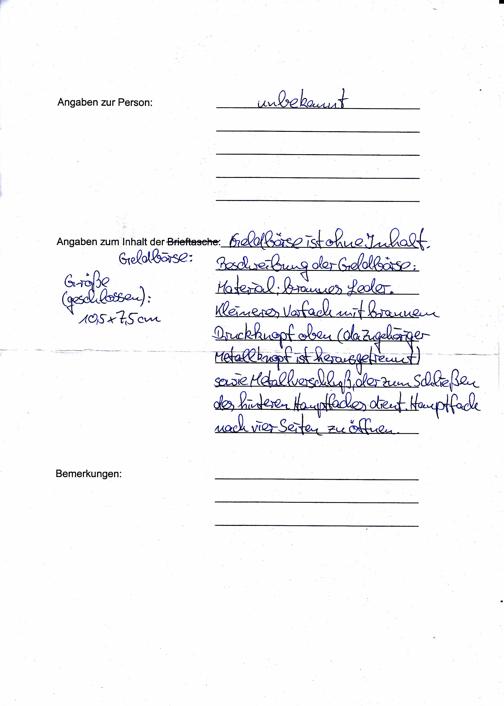 Angaben zur Person: unbekannt
Angaben zum Inhalt der Brieftasche: Geldbörse ist ohne Inhalt.
Geldbörse:
Beschreibung der Geldbörse:
Größe
(geschlossen):
10,5 x 7,5 cm
Material: braunes Leder.
Kleineres Vorfach mit braunem
Druckknopf oben (dazugehöriger
Metallknopf ist herausgetrennt)
sowie Metallverschluß, der zum Schließen
des hinteren Hauptfaches dient. Hauptfach
nach vier Seiten zu öffnen.
Bemerkungen: